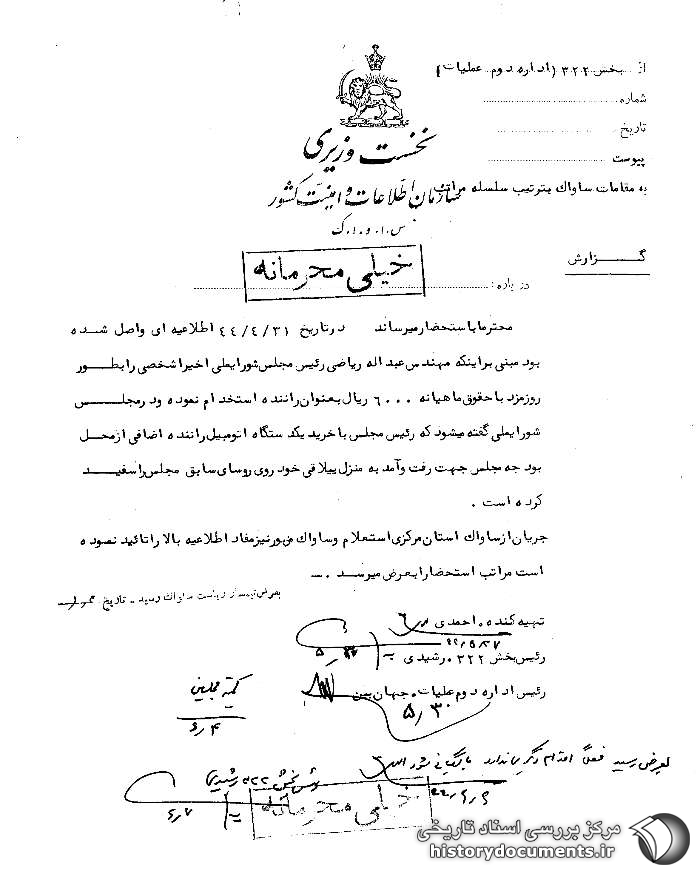 از بخش ۳۲۲ (اداره دوم عملیات)
شماره
تاریخ
پیوست
نخست وزیری
سازمان اطلاعات و امنیت کشور
س.ا.و.ا.ک
به مقامات ساواك بترتیب سلسله مراتب
گزارش
خیلی محرمانه
درباره:
محترما باستحضار میرساند درتاریخ ۴۴/۴/۳۱ اطلاعیه ای واصل شده
بود مبنی براینکه مهندس عبداله ریاضی رئیس مجلس شورایملی اخیرا شخصی رابطور
روزمزد با حقوق ماهیانه ۶۰۰۰ ریال بعنوان راننده استخدام نموده و درمجلس
شورایملی گفته میشود که رئیس مجلس با خرید یکدستگاه اتومبیل راننده اضافی ازمحل
بودجه مجلس جهت رفت وآمد به منزل ییلاقی خود روی روسای سابق مجلس را سفید
کرده است .
جریان ازساواك استان مرکزی استعلام وساواك مزبور نیز مفاد اطلاعیه بالا را تائید نموده
است مراتب استحضارا بعرض میرسد .
بعرض تیمسار ریاست ساواك رسید - تاریخ
تهیه کننده . احمدی
رئیس بخش ۳۲۲ . رشیدی
رئیس اداره دوم عملیات . جهان بین
۵/۳۰
۶/۴
بعرض رسید فعلاً اقدام دیگری ندارد بایگانی شود
رئیس بخش ۳۲۲ رشیدی
۴۴/۶/۶
۶/۷
خیلی محرمانه
مرکز بررسی اسناد تاریخی
historydocuments.ir